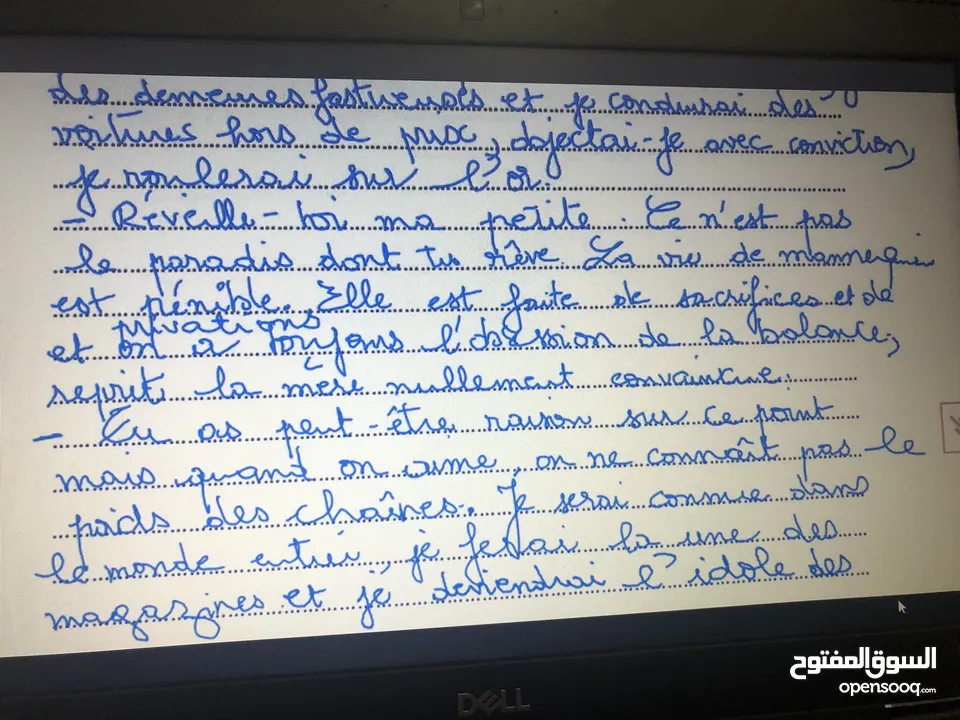 des demeures fastueuses et je conduirai des
voitures hors de prix, objectai-je avec conviction,
je roulerai sur l'or.
- Réveille-toi ma petite. Ce n'est pas
le paradis dont tu rêve La vie de mannequin
est pénible. Elle est faite de sacrifices et de
privations
et on a toujours l'obsession de la balance,
reprit la mère nullement convaincue.
- Tu as peut-être raison sur ce point
mais quand on aime, on ne connaît pas le
poids des chaînes. Je serai connue dans
le monde entier, je ferai la une des
magazines et je deviendrai l'idole des
السوق المفتوح
opensooq.com
DELL